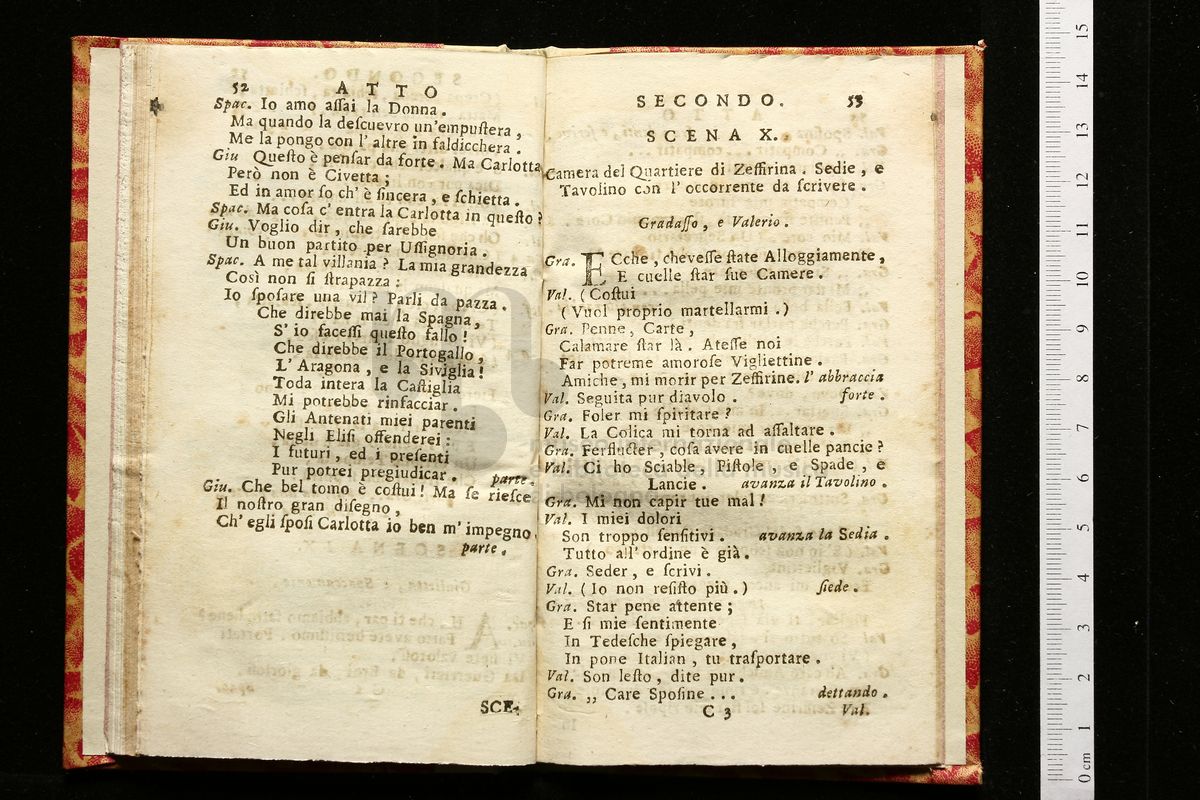 52 ATTO
Spac. Io amo aſſai la Donna.
Ma quando la deſcuevro un'empuſtera,
Me la pongo con l' altre in faldicchera.
Giu Queſto è penſar da forte. Ma Carlotta
Però non è Civetta;
Ed in amor ſo ch' è ſincera, e ſchietta.
Spac. Ma coſa c' entra la Carlotta in queſto?
Giu. Voglio dir, che ſarebbe
Un buon partito per Uſſignoria.
Spac. A me tal villania? La mia grandezza
Così non ſi ſtrapazza:
Io ſpoſare una vil? Parli da pazza.
Che direbbe mai la Spagna,
S' io faceſſi queſto fallo!
Che direbbe il Portogallo,
L' Aragona, e la Siviglia!
Toda intera la Caſtiglia
Mi potrebbe rinfacciar.
Gli Antenati miei parenti
Negli Eliſi offenderei:
I futuri, ed i preſenti
Pur potrei pregiudicar. parte.
Giu. Che bel tomo è coſtui! Ma ſe rieſce
Il noſtro gran diſegno,
Ch' egli ſpoſi Carlotta io ben m' impegno.
parte.
SCE-
SECONDO. 53
SCENA X.
Camera del Quartiere di Zeffirina. Sedie, e
Tavolino con l' occorrente da ſcrivere.
Gradaſſo, e Valerio.
Gra. ECche, cheveſſe ſtate Alloggiamente,
E cuelle ſtar ſue Camere.
Val. (Coſtui
(Vuol proprio martellarmi.)
Gra. Penne, Carte,
Calamare ſtar là. Ateſſe noi
Far potreme amoroſe Vigliettine.
Amiche, mi morir per Zeffirine. l' abbraccia
Val. Seguita pur diavolo. forte.
Gra. Foler mi ſpiritare?
Val. La Colica mi torna ad aſſaltare.
Gra. Ferflucter, coſa avere in cuelle pancie?
Val. Ci ho Sciable, Piſtole, e Spade, e
Lancie. avanza il Tavolino.
Gra. Mi non capir tue mal!
Val. I miei dolori
Son troppo ſenſitivi. avanza la Sedia.
Tutto all' ordine è già.
Gra. Seder, e ſcrivi.
Val. (Io non reſiſto più.) ſiede.
Gra. Star pene attente;
E ſi mie ſentimente
In Tedeſche ſpiegare,
In pone Italian, tu traſportare.
Val. Son leſto, dite pur.
Gra. ,, Care Spoſine ... dettando.
C 3 Val.
0 cm 1 2 3 4 5 6 7 8 9 10 11 12 13 14 15